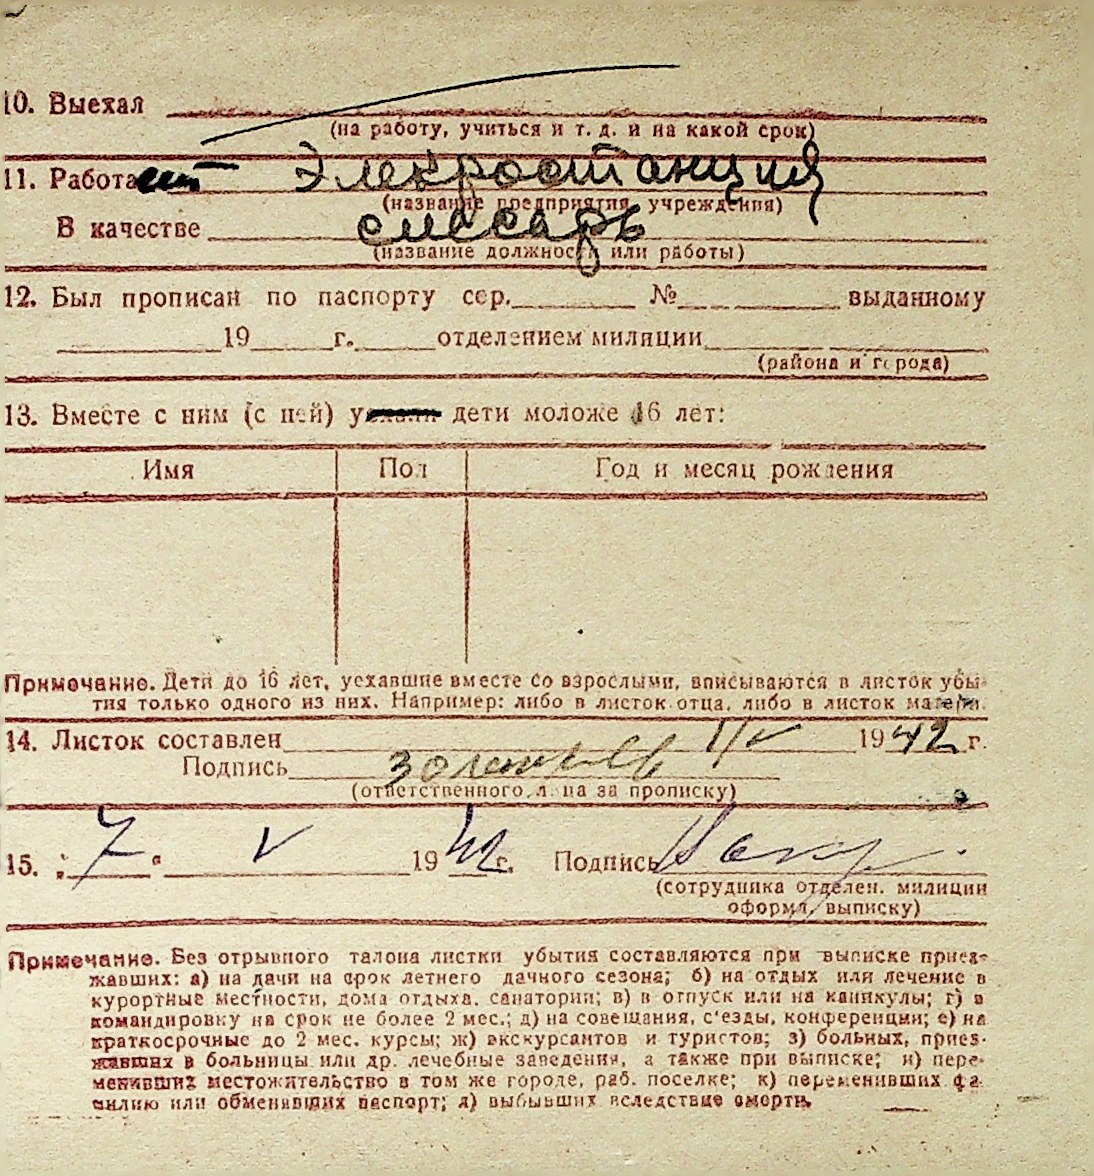 10. Выехал
(на работу, учиться и т. д. и на какой срок)
11. Работает Элекростанция
(название предприятия, учреждения)
В качестве слесарь
(название должности или работы)
12. Был прописан по паспорту сер. № выданному
19 г. отделением милиции
(района и города)
13. Вместе с ним (с ней) уехали дети моложе 16 лет:
Имя Пол Год и месяц рождения
Примечание. Дети до 16 лет, уехавшие вместе со взрослыми, вписываются в листок убы-
тия только одного из них. Например: либо в листок отца, либо в листок матери.
14. Листок составлен 1/V 1942 г.
Подпись
(ответственного лица за прописку)
15. „7“ V 1942 г. Подпись
(сотрудника отделен. милиции
оформ. выписку)
Примечание. Без отрывного талона листки убытия составляются при выписке приез-
жавших: а) на дачи на срок летнего дачного сезона; б) на отдых или лечение в
курортные местности, дома отдыха, санатории; в) в отпуск или на каникулы; г) в
командировку на срок не более 2 мес.; д) на совещания, с'езды, конференции; е) на
краткосрочные до 2 мес. курсы; ж) экскурсантов и туристов; з) больных, приез-
жавших в больницы или др. лечебные заведения, а также при выписке; и) пере-
менивших местожительство в том же городе, раб. поселке; к) переменивших фа-
милию или обменявших паспорт; л) выбывших вследствие смерти.